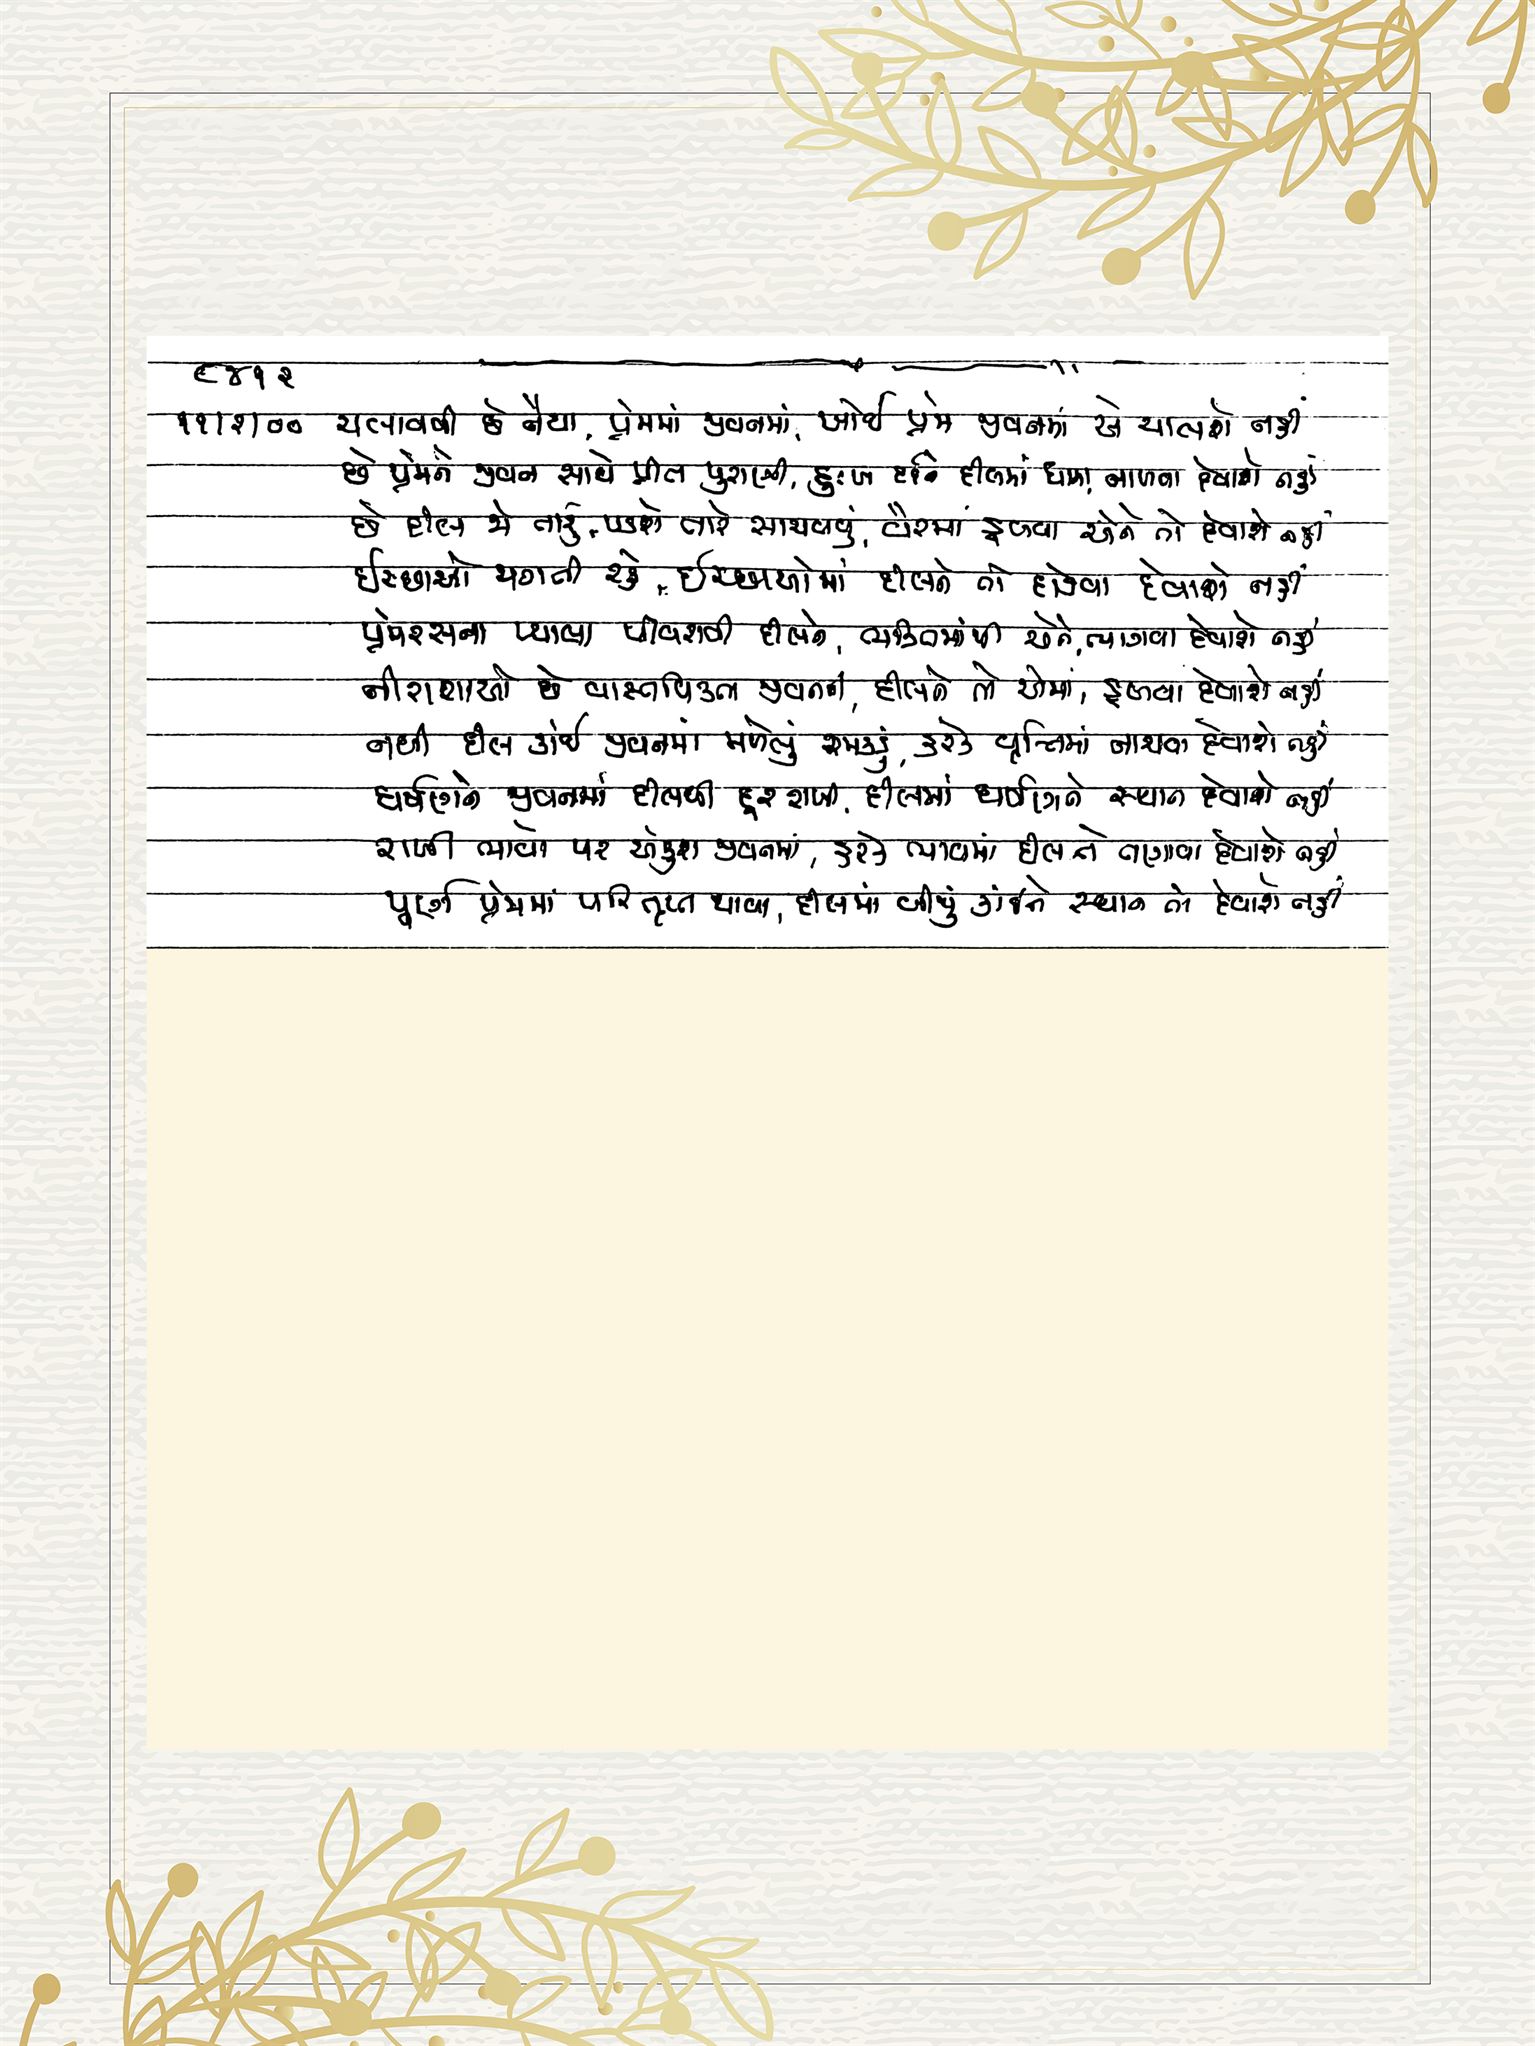 ૯૪૧૨
૧૧/૨/૦૦ ચલાવવી છે નૈયા, પ્રેમમાં જીવનમાં, ઓછો પ્રેમ જીવનમાં એ ચાલશે નહીં
છે પ્રેમને જીવન સાથે પ્રીત પુરાણી, દુઃખ દર્દને દીલમાં ધામા નાખવા દેવાશે નહીં
છે દીલ એ તારું, પડશે તારે સાચવવું, વૈરમાં ડૂબવા એને તો દેવાશે નહીં
ઈચ્છાઓ થાતી રહે, ઈચ્છાઓમાં દીલને તો દોડવા દેવાશે નહીં
પ્રેમરસના પ્યાલા પીવરાવી દીલને, ભક્તિમાંથી એને, ભાગવા દેવાશે નહીં
નીરાશાઓ છે વાસ્તવિકતા જીવનની, દીલને તો એમાં, ડૂબવા દેવાશે નહીં
નથી દીલ કાંઈ જીવનમાં મળેલું રમકડું, હરેક વૃત્તિમાં નાચવા દેવાશે નહીં
ઘર્ષણને જીવનમાં દીલથી દૂર રાખી, દીલમાં ઘર્ષણને સ્થાન દેવાશે નહીં
રાખી ભાવો પર અંકુશ જીવનમાં, હરેક ભાવમાં દીલને તણાવા દેવાશે નહીં
પૂર્ણ પ્રેમમાં પરિતૃપ્ત થાવા, દીલમાં બીજું કાંઈને સ્થાન તો દેવાશે નહીં